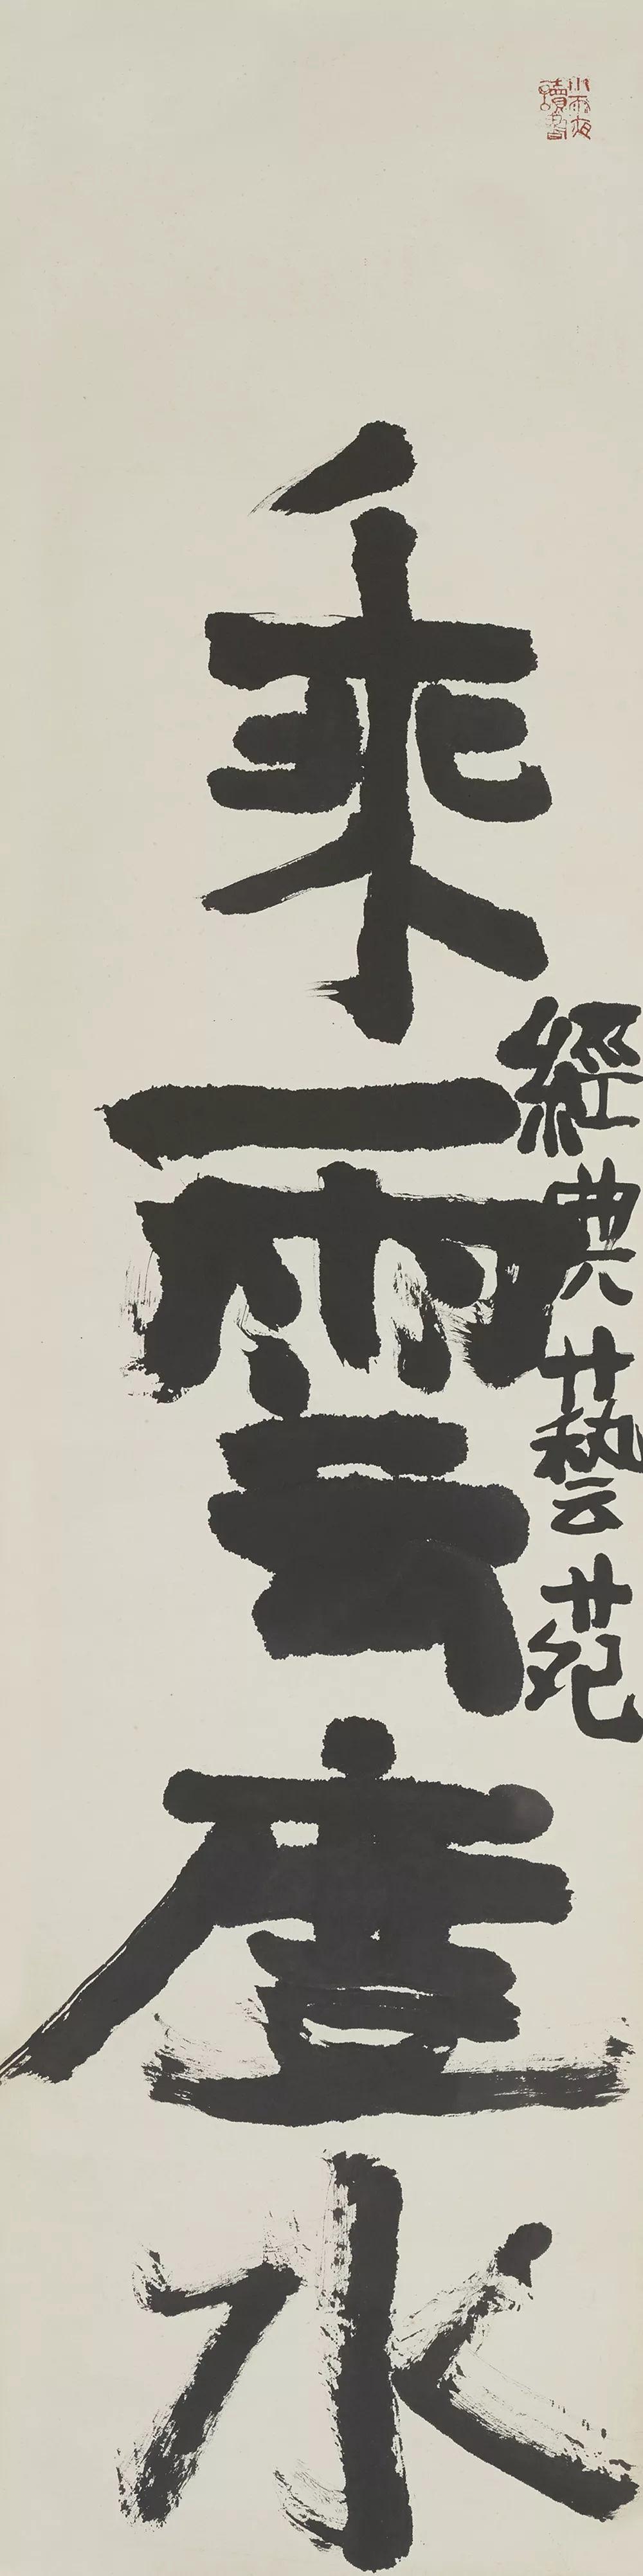 小雨夜
讀書
經典藝苑
乘雲水